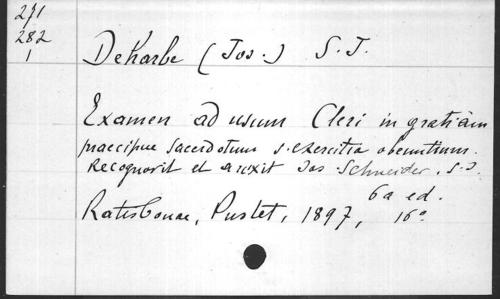 271
282
1
DeHarbe (Jos.) S.J.
Examen ad usum Cleri in gratiam
praecipue sacerdotum s. exercitia obeuntium.
Recognovit et auxit Jos Schneider, S.J.
6a ed.
Ratisbonae, Pustet, 1897, 16°